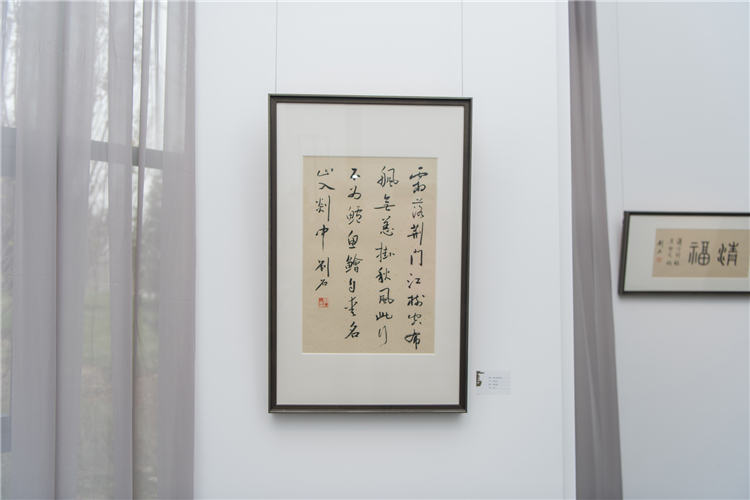 霜落荆门江树空布
帆無恙掛秋风此行
不为鲈鱼鲙自爱名
山入剡中 刘石
清福